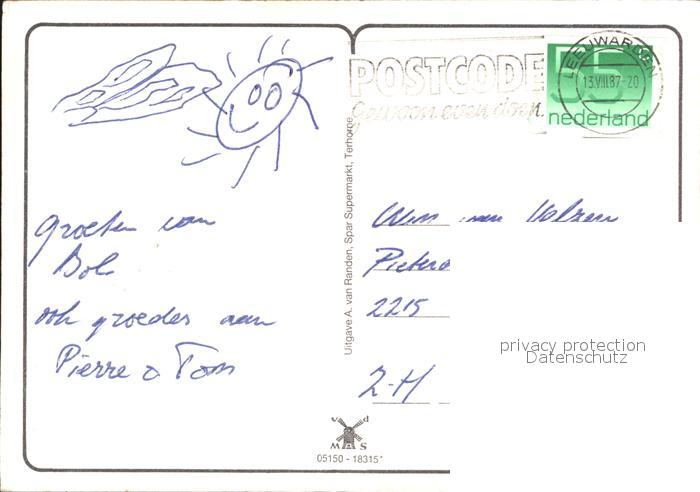 POSTCODE
gewoon even doen.
LEEUWARDEN
13.VIII.87-20
55
nederland
Groeten van
Bob
ook groeten aan
Pierre & Tom
Uitgave A. van Randen, Spar Supermarkt, Terhorne
Wim van
Pieter
2215
Z-H
privacy protection
Datenschutz
MAS
05150 - 18315*